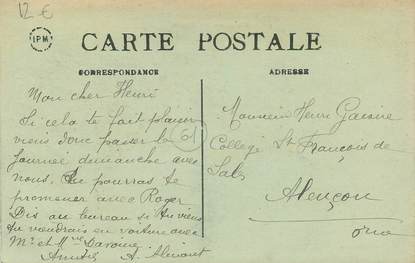 12 €
IPM
CARTE POSTALE
CORRESPONDANCE
ADRESSE
Mon cher Henri
Si cela te fait plaisir
viens donc passer la
journée dimanche avec
nous. Tu pourras te
promener avec Roger
Dis au bureau si tu viens
tu voudrais en voiture avec
Mr et Mme
Amitiés A.
61
Monsieur Henri
Collège St François de
Sales
Alençon
Orne